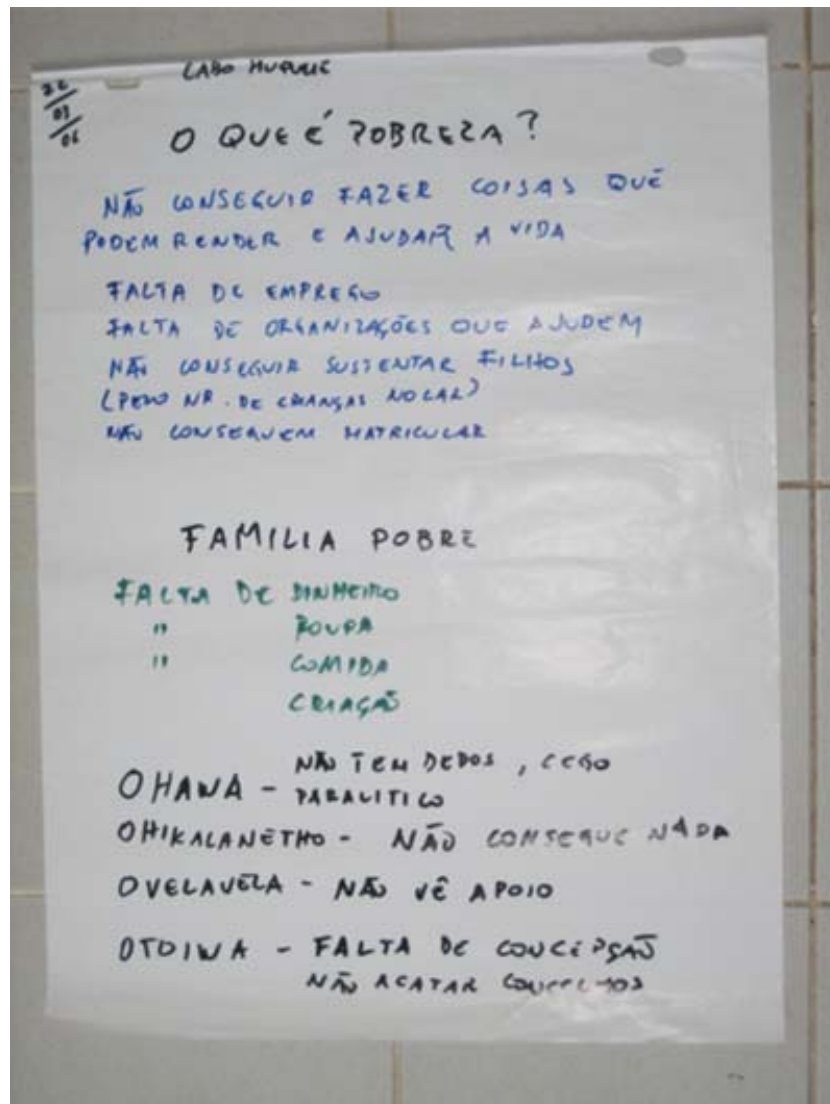 22/03/06
CABO
O QUE É POBREZA?
NÃO CONSEGUIR FAZER COISAS QUE
PODEM RENDER E AJUDAR A VIDA
FALTA DE EMPREGO
FALTA DE ORGANIZAÇÕES QUE AJUDEM
NÃO CONSEGUIR SUSTENTAR FILHOS
(PELO NR. DE CRIANÇAS NO LAR)
NÃO CONSEGUEM MATRICULAR
FAMILIA POBRE
FALTA DE DINHEIRO
" ROUPA
" COMIDA
CRIAÇÃO
OHAWA - NÃO TEM DEDOS, CEGO
PARALITICO
OHIKALANETHO - NÃO CONSEGUE NADA
OVELAVELA - NÃO VÊ APOIO
OTOIWA - FALTA DE CONCEPSÃO
NÃO ACATAR CONCELHOS